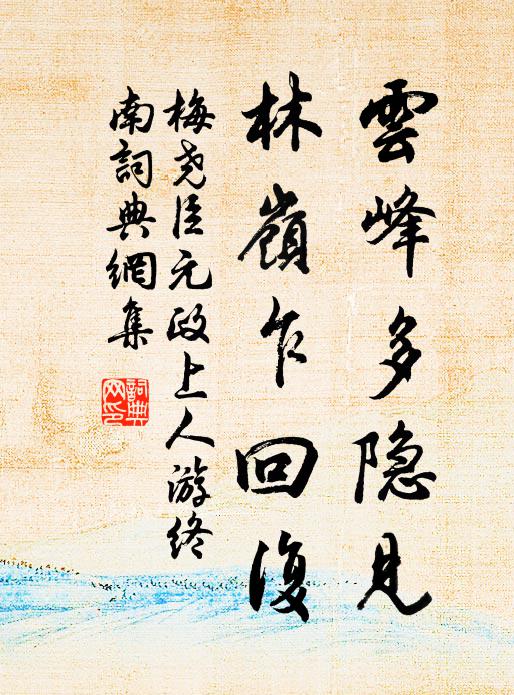 雲峰多隐見
林嶺乍回復
梅尧臣元政上人游终
南詞典網集
詞典
网印